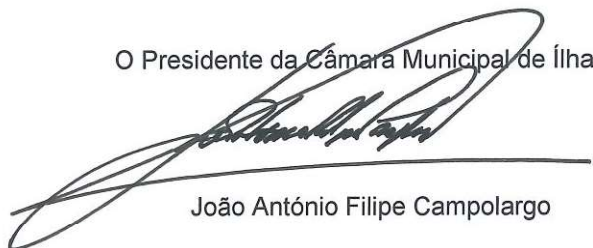 O Presidente da Câmara Municipal de Ílha
João António Filipe Campolargo